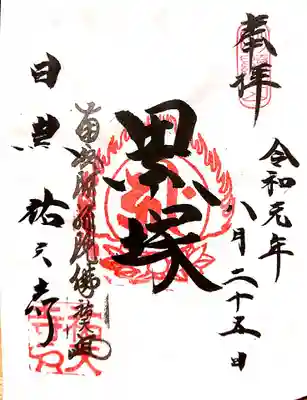 奉拝
令和元年
八月二十五日
累塚
南無阿弥陀佛 祐天
目黒 祐天寺